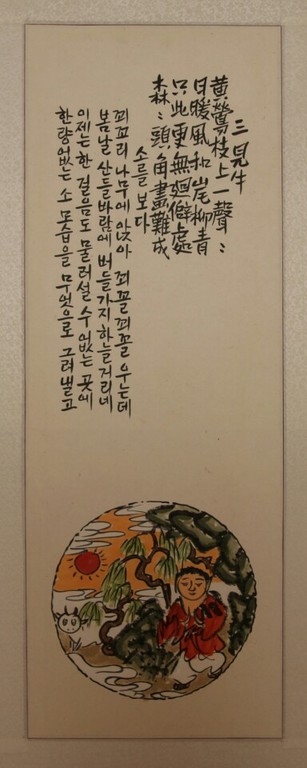 三 見牛
黃鶯枝上一聲〻
日暖風和岸柳青
只此更無廻僻處
森〻頭角畫難成
소를 보다
꾀꼬리 나무에 앉아 꾀꼴꾀꼴 우는데
봄날 산들바람에 버들가지 하늘거리네
이제는 한 걸음도 물러설 수 없는 곳에
한량없는 소 모습을 무엇으로 그려 낼고